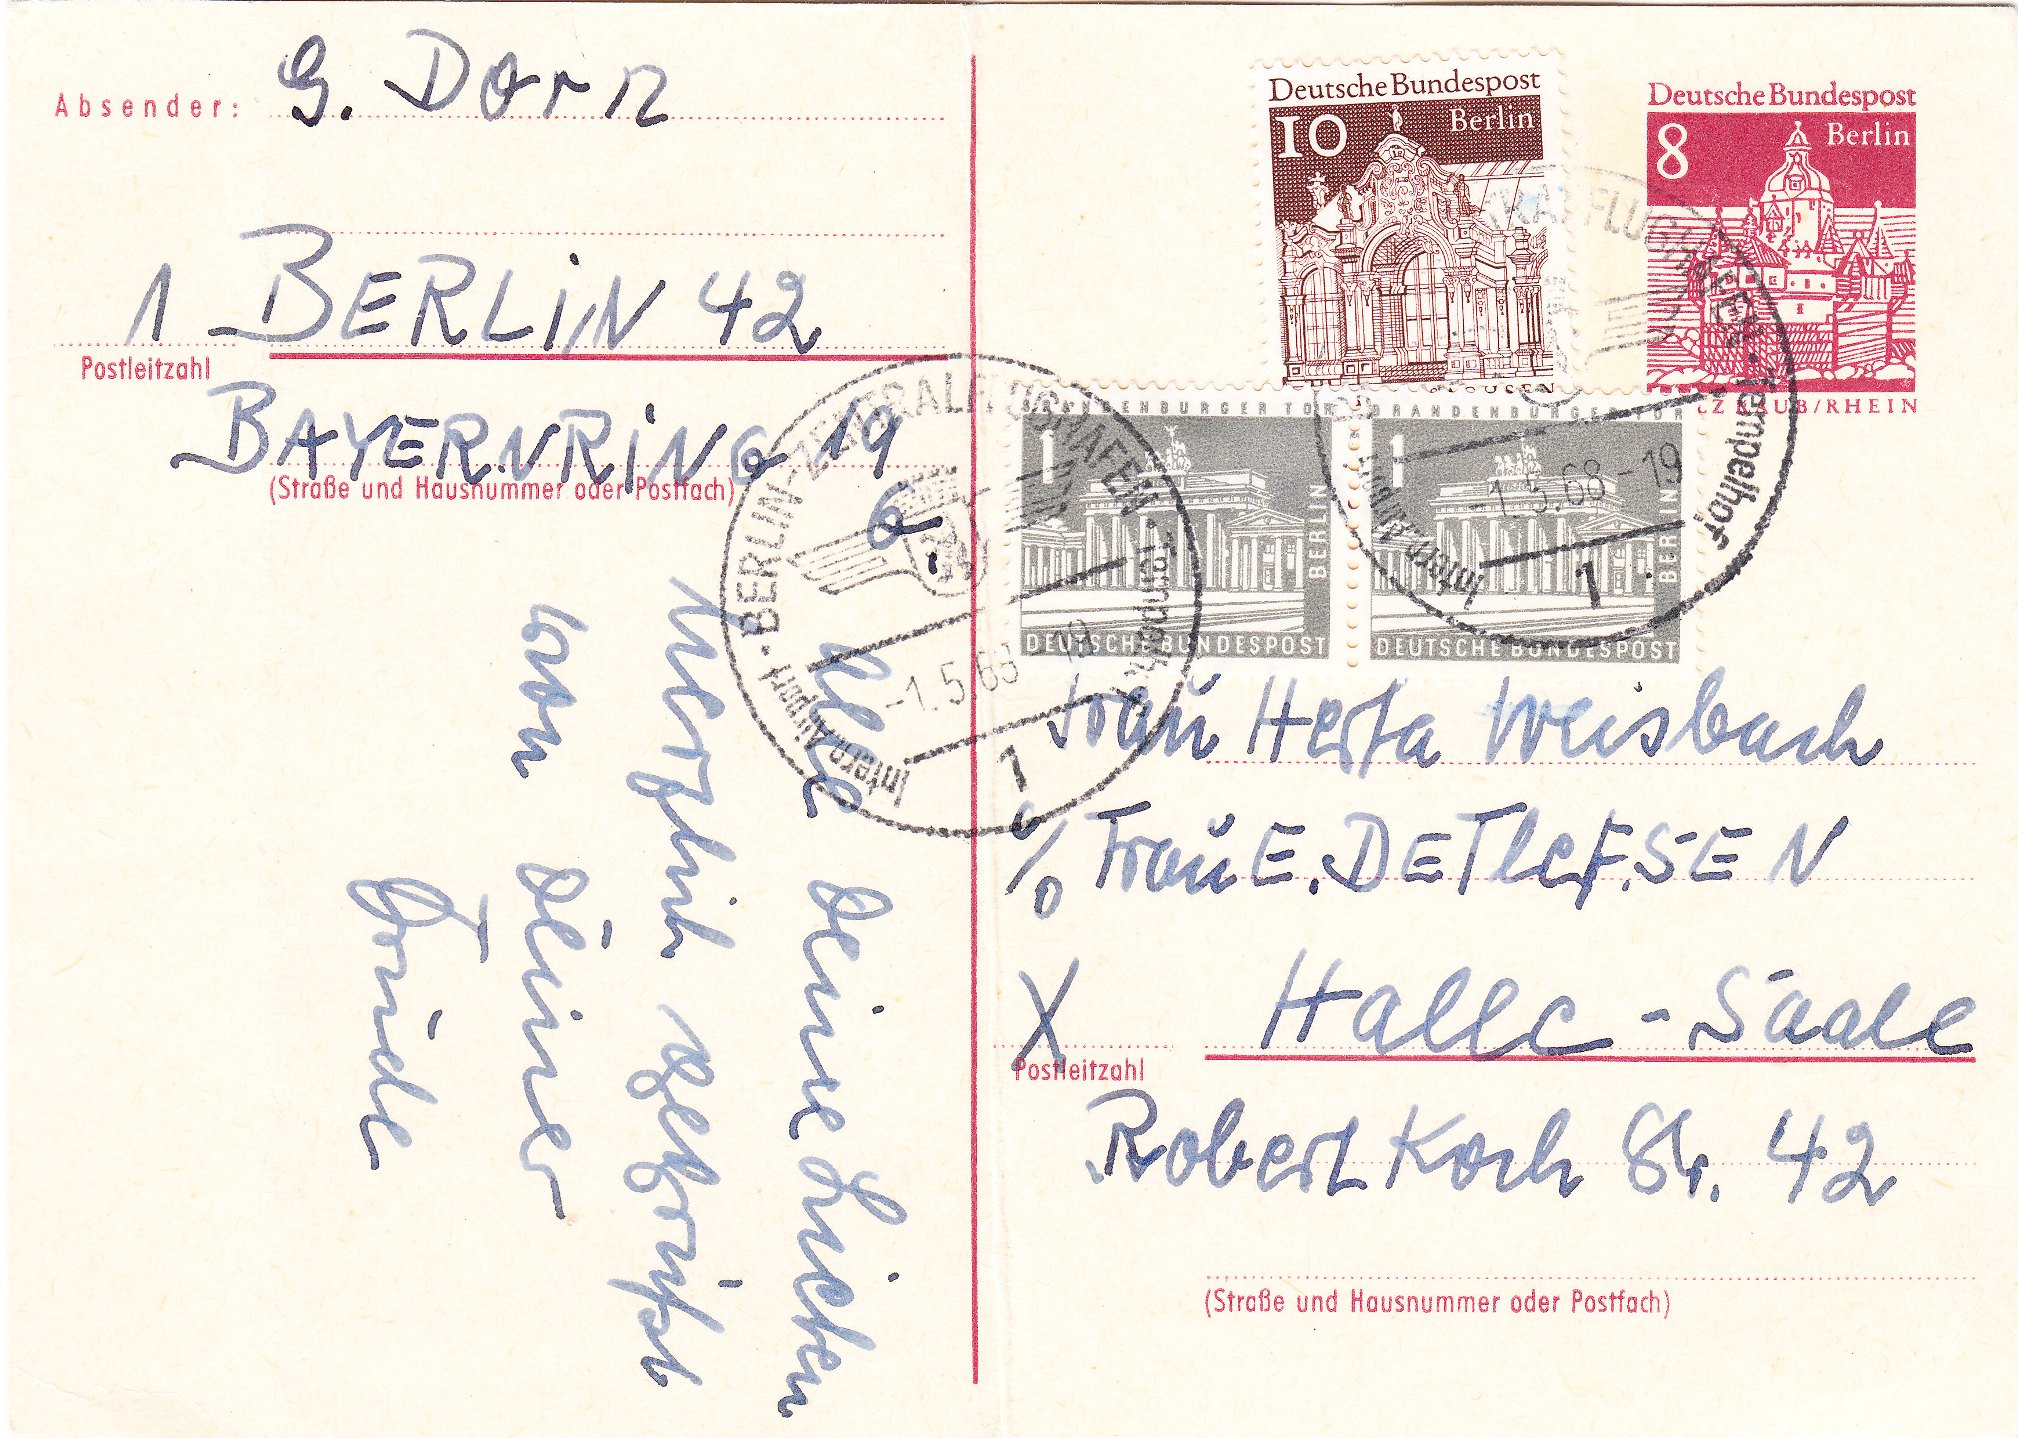 Absender: G. Dorn
1 BERLIN 42
Postleitzahl
BAYERNRING 19
(Straße und Hausnummer oder Postfach)
alle Deine Lieben
herzlich gegrüßt
von Deiner
Deutsche Bundespost
10 Berlin
Deutsche Bundespost
8 Berlin
PFALZ KAUB/RHEIN
BRANDENBURGER TOR
1
BERLIN
DEUTSCHE BUNDESPOST
BRANDENBURGER TOR
1
BERLIN
DEUTSCHE BUNDESPOST
BERLIN-ZENTRALFLUGHAFEN
Tempelhof
-1.5.68-19
1
Intern. Airport
ZENTRALFLUGHAFEN
Tempelhof
-1.5.68-19
1
Intern. Airport
Frau Herta Weisbach
c/o Frau E. DETLEFSEN
X Halle - Saale
Postleitzahl
Robert Koch Str. 42
(Straße und Hausnummer oder Postfach)